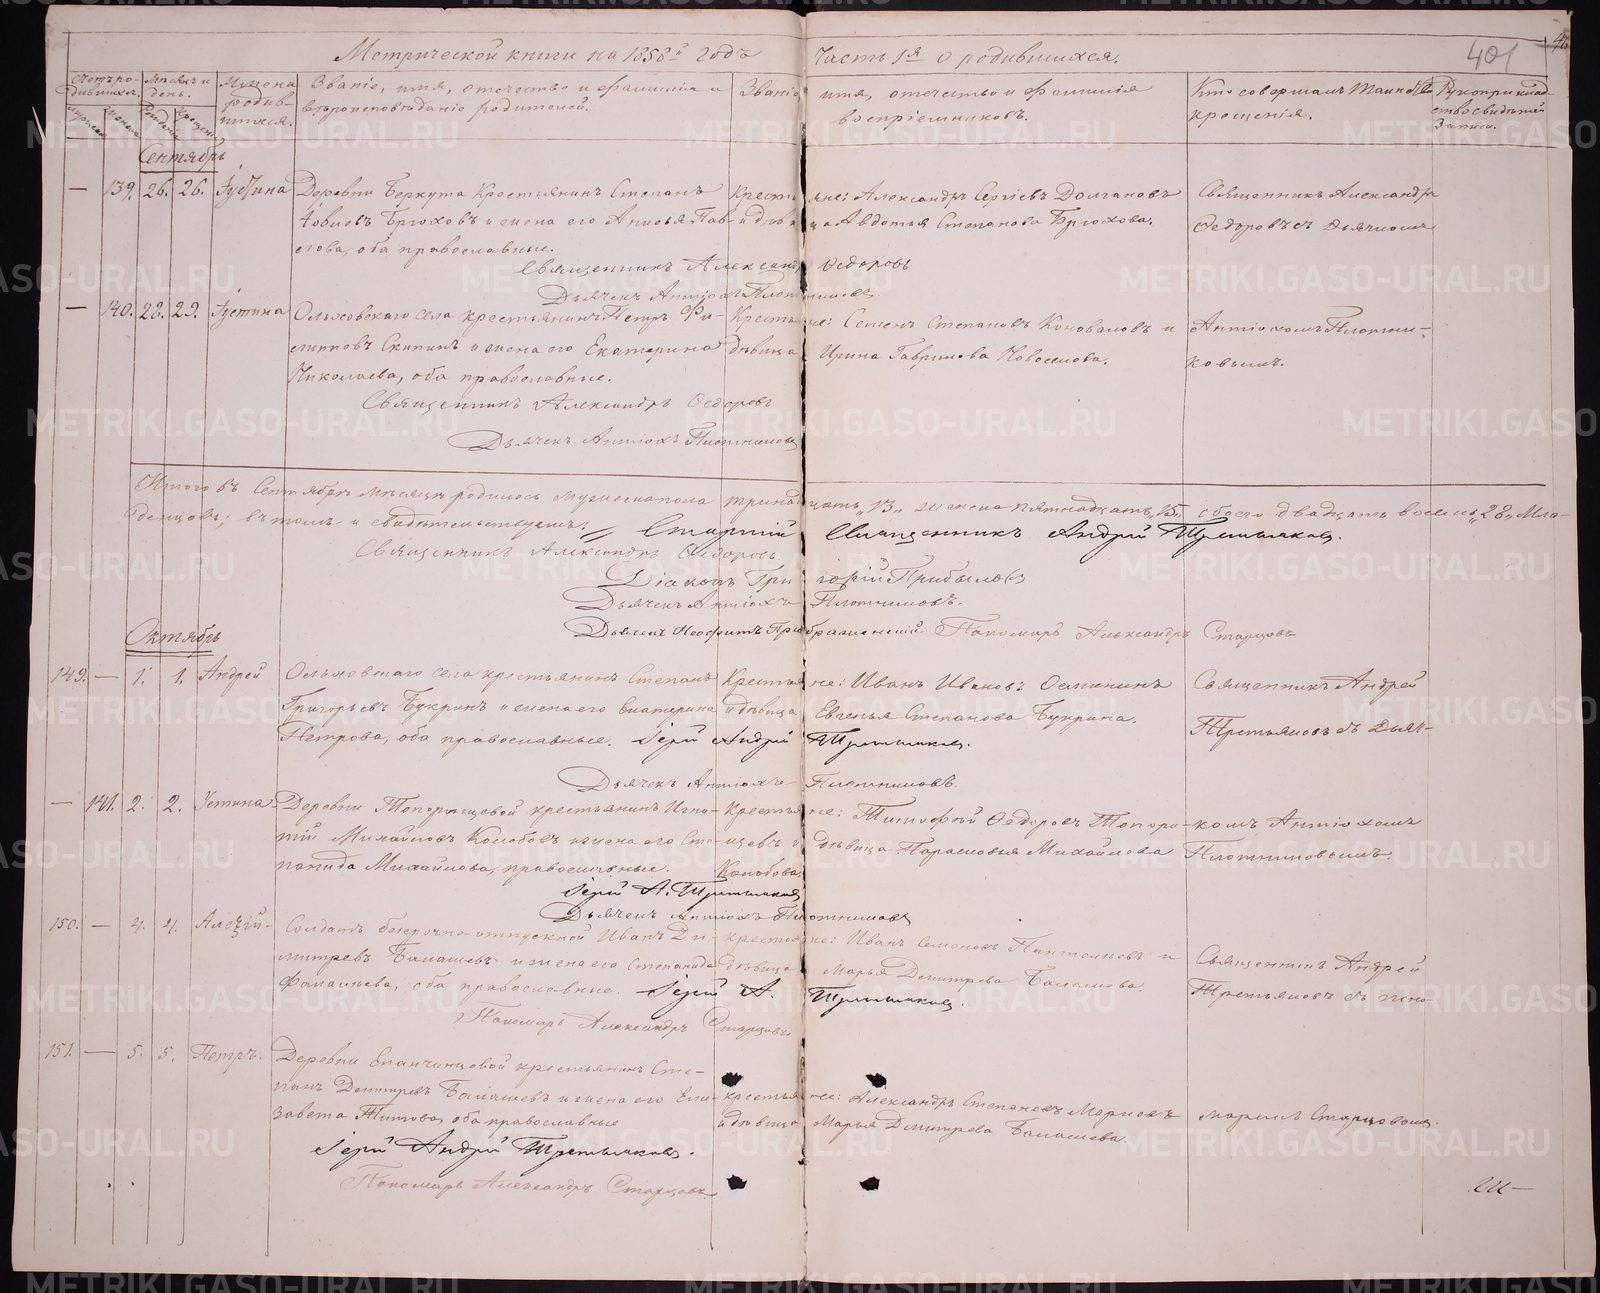 Метрической книги на 1858й годъ Часть 1я о родившихся.
401
Счетъ родившихся. Мѣсяцъ и день. Имена родившихся. Званіе, имя, отечество и фамилія и вѣроисповѣданіе родителей. Званіе, имя, отечество и фамилія воспріемниковъ. Кто совершалъ таинство крещенія. Рукоприкладство свидѣтелей записи.
Сентябрь
139. 26. 26. Іустина Деревни Беркута крестьянинъ Степанъ Крестьяне: Александръ Сергіевъ Долгановъ Священникъ Александръ
Іовлевъ Брюховъ и жена его Анисья Пав- и дѣвица Авдотья Степанова Брюхова. Ѳедоровъ съ Дьячкомъ
лова, оба православные.
Священникъ Александръ Ѳедоровъ
Дьячекъ Антіохъ Плотниковъ
140. 28. 29. Іустина Ольховскаго села крестьянинъ Петръ Фи- Крестьяне: Семенъ Степановъ Коноваловъ и Антіохомъ Плотни-
липповъ Скитинъ и жена его Екатерина дѣвица Ирина Гаврилова Новоселова. ковымъ.
Николаева, оба православные.
Священникъ Александръ Ѳедоровъ
Дьячекъ Антіохъ Плотниковъ
Итого въ Сентябрѣ мѣсяцѣ родилось мужеска пола тринадцать „13„ женска пятнадцать „15„ обоего двадцать восемь „28„ Мла-
денцовъ; въ томъ и свидѣтельствуемъ: Старшій Священникъ Андрей Третьяковъ.
Священникъ Александръ Ѳедоровъ
Діаконъ Григорій Прибылевъ
Дьячекъ Антіохъ Плотниковъ.
Дьячекъ Неофитъ Преображенскій. Пономарь Александръ Старцовъ
Октябрь
149. 1. 1. Андрей Ольховскаго села крестьянинъ Степанъ Крестьяне: Иванъ Ивановъ Осмининъ Священникъ Андрей
Григорьевъ Букринъ и жена его Екатерина и дѣвица Евгенья Степанова Букрина. Третьяковъ съ Дьяч-
Петрова, оба православные. Іерей Андрей Третьяковъ.
Дьячекъ Антіохъ Плотниковъ.
141. 2. 2. Устина Деревни Топорищевой крестьянинъ Игна- Крестьяне: Тимофѣй Ѳедоровъ Топори- комъ Антіохомъ
тій Михайловъ Колобовъ и жена его Сте- щевъ и дѣвица Парасковья Михайлова Плотниковымъ.
панида Михайлова, православные. Колобова.
Іерей А. Третьяковъ
Дьячекъ Антіохъ Плотниковъ
150. 4. 4. Алексій Солдатъ безсрочно-отпускной Иванъ Ди- крестьяне: Иванъ Семеновъ Пантелеевъ и Священникъ Андрей
митревъ Балашевъ и жена его Степанида дѣвица Марья Демитрева Балашова. Третьяковъ съ поно-
оба православные. Іерей А. Третьяковъ.
Пономарь Александръ Старцовъ
151. 5. 5. Петръ. Деревни Епанчинцовой крестьянинъ Сте-
панъ Демитревъ Балашевъ и жена его Ели- крестьяне: Александръ Степановъ Марковъ маремъ Старцовымъ.
завета Титова, оба православные и дѣвица Марья Дмитрева Балашева.
Іерей Андрей Третьяковъ.
Пономарь Александръ Старцовъ
METRIKI.GASO-URAL.RU